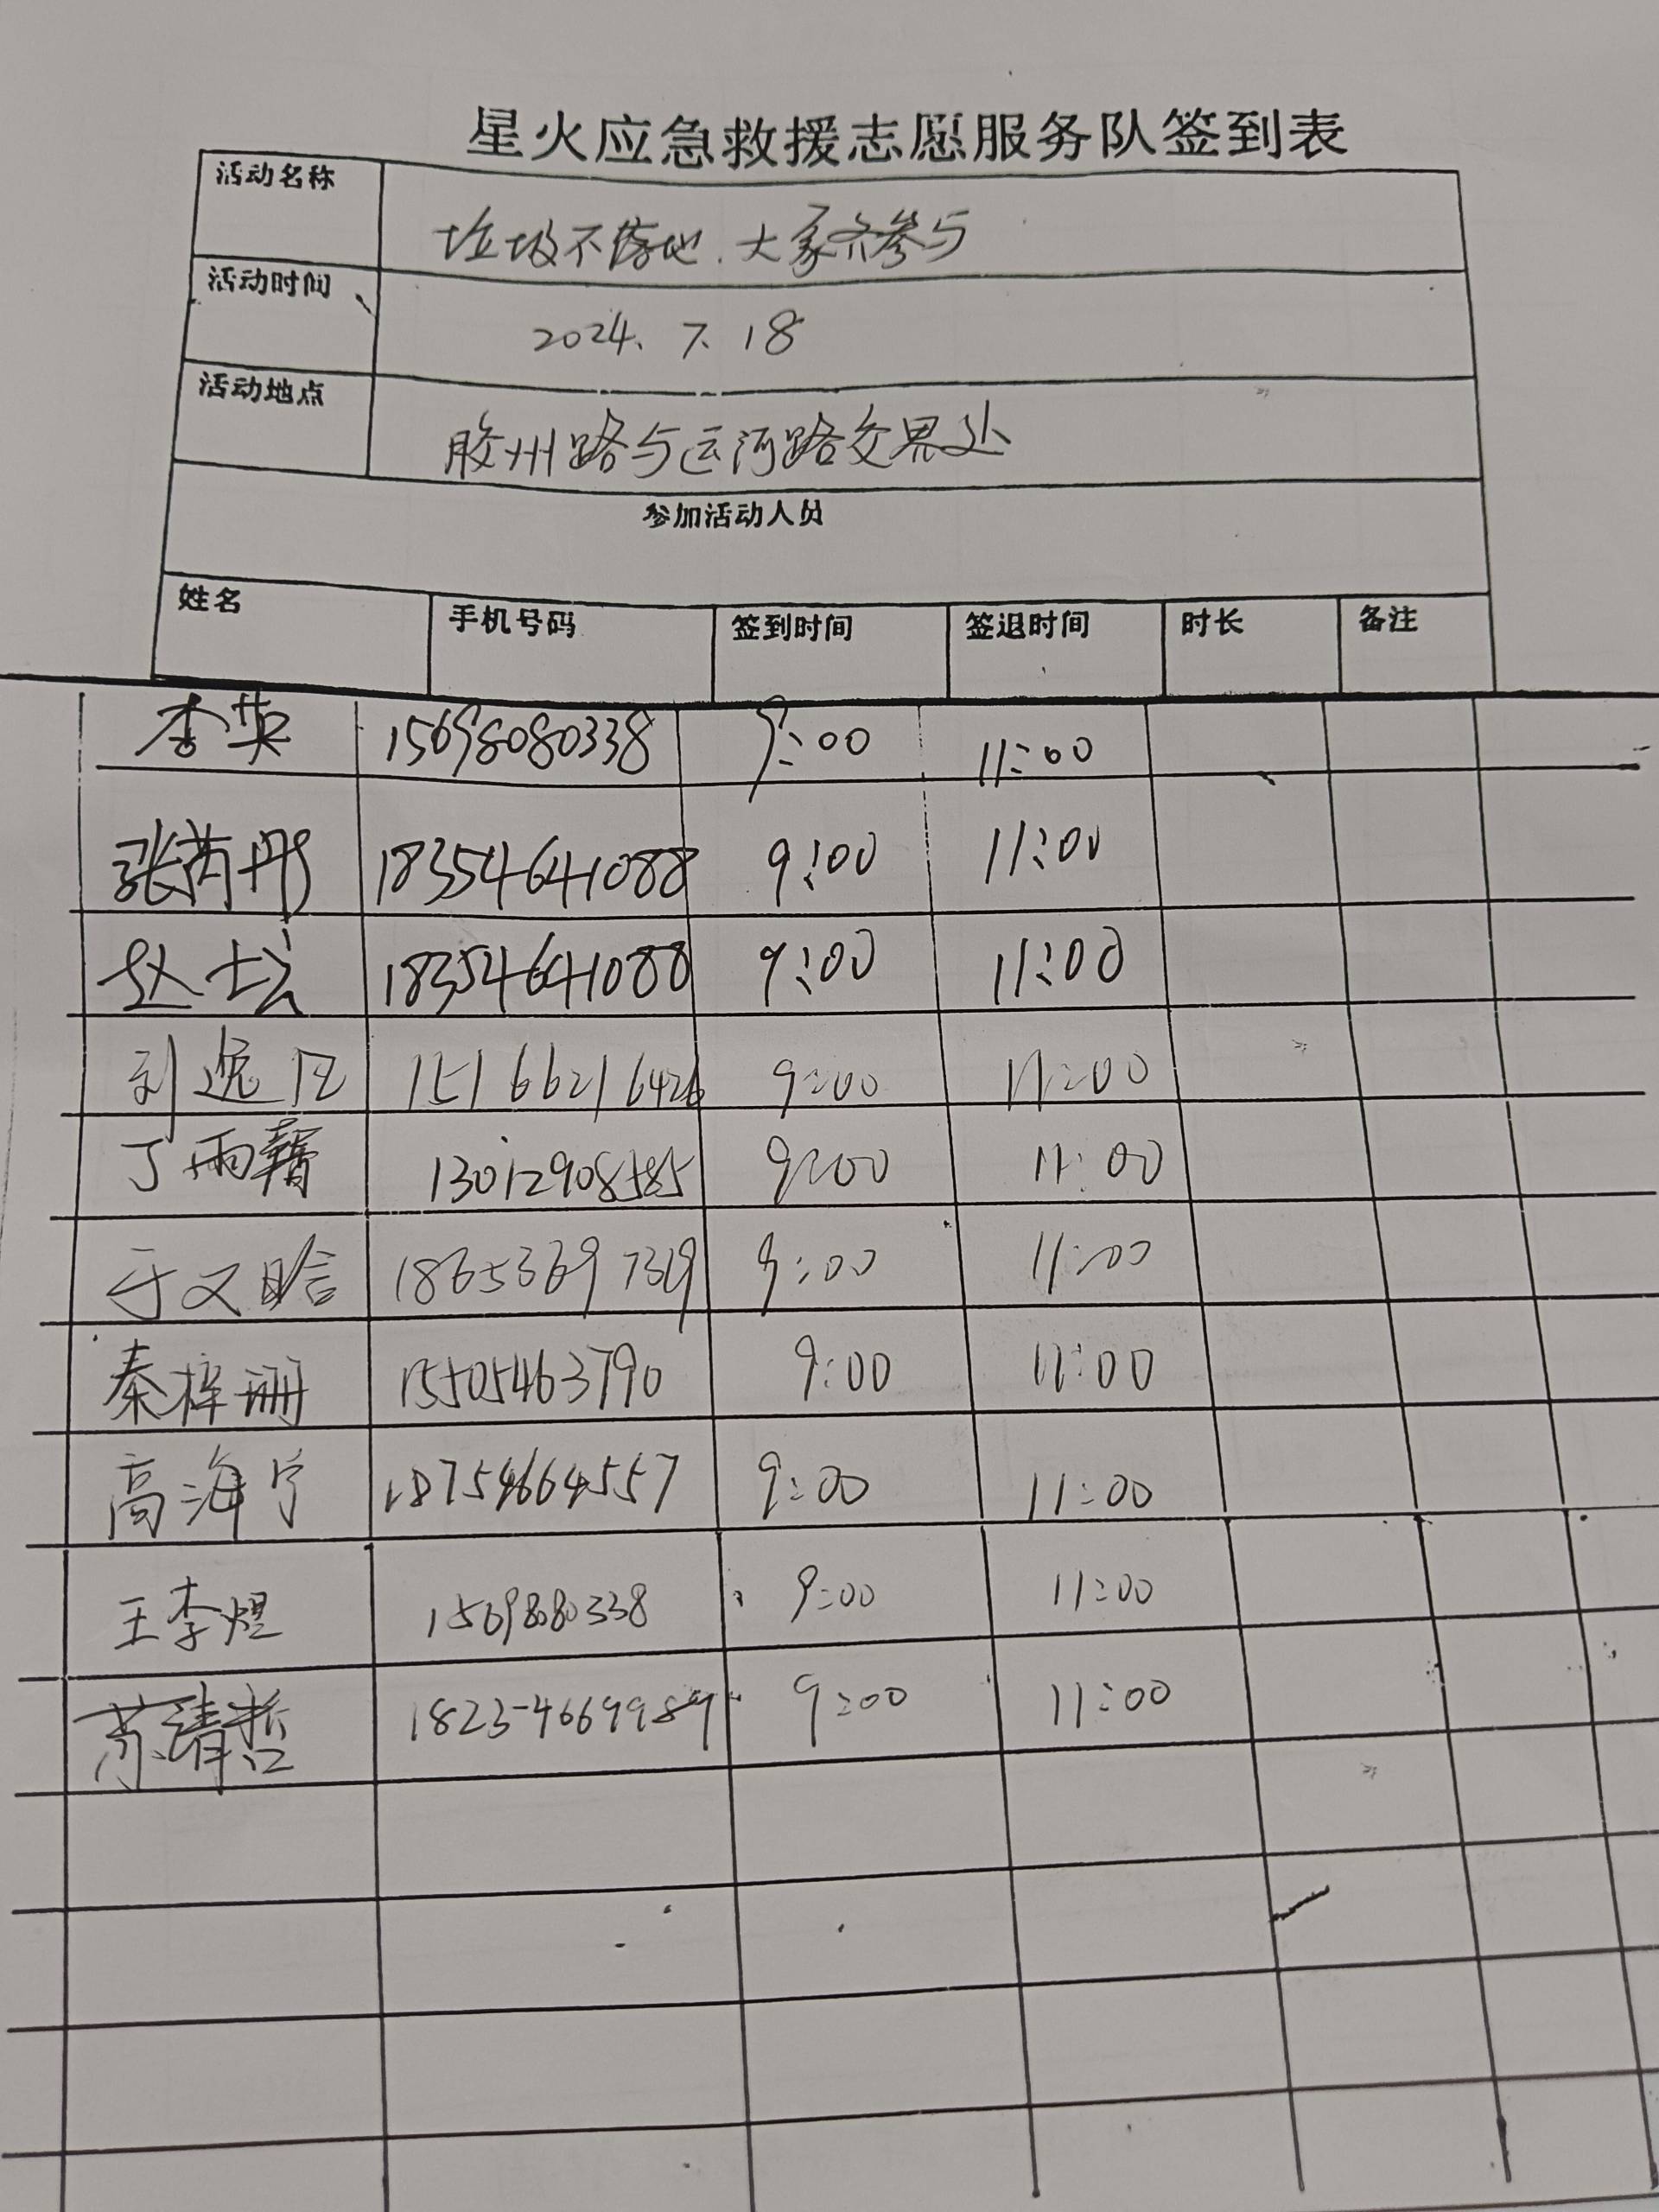 星火应急救援志愿服务队签到表
活动名称 垃圾不落地.大家齐参与
活动时间 2024.7.18
活动地点 胶州路与运河路交界处
参加活动人员
姓名 手机号码 签到时间 签退时间 时长 备注
李英 15698080338 9:00 11:00
张芮彤 18354641088 9:00 11:00
赵士 18354641088 9:00 11:00
刘逸 15166216426 9:00 11:00
丁雨 13012908585 9:00 11:00
于文晗 18653697319 9:00 11:00
秦梓珊 15505463790 9:00 11:00
高海宁 18754664557 9:00 11:00
王李煜 15698080338 9:00 11:00
苏靖哲 1823-4669989 9:00 11:00